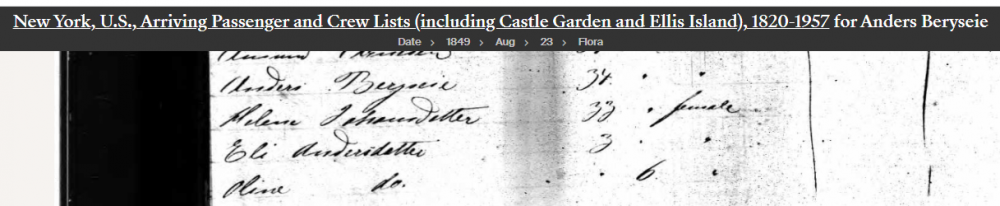 New York, U.S., Arriving Passenger and Crew Lists (including Castle Garden and Ellis Island), 1820-1957 for Anders Beryseie
Date > 1849 > Aug > 23 > Flora
Anders Beryseie 34 " "
Helene Johannsdatter 33 " female
Eli Andersdatter 3 "
Oline do. " 6 "